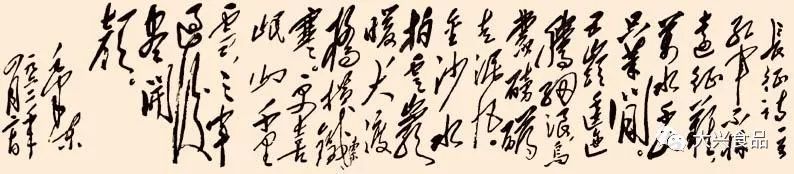 長征詩一首
紅軍不怕
遠征難
萬水千山
只等閒。
五嶺逶迤
騰細浪烏
蒙磅礴
走泥丸。
金沙水
拍雲崖
暖大渡
橋橫鐵索
寒。更喜
岷山千里
雪，三軍
過後
盡開
顏。
毛澤東
一九六二年
四月廿日
六兴食品